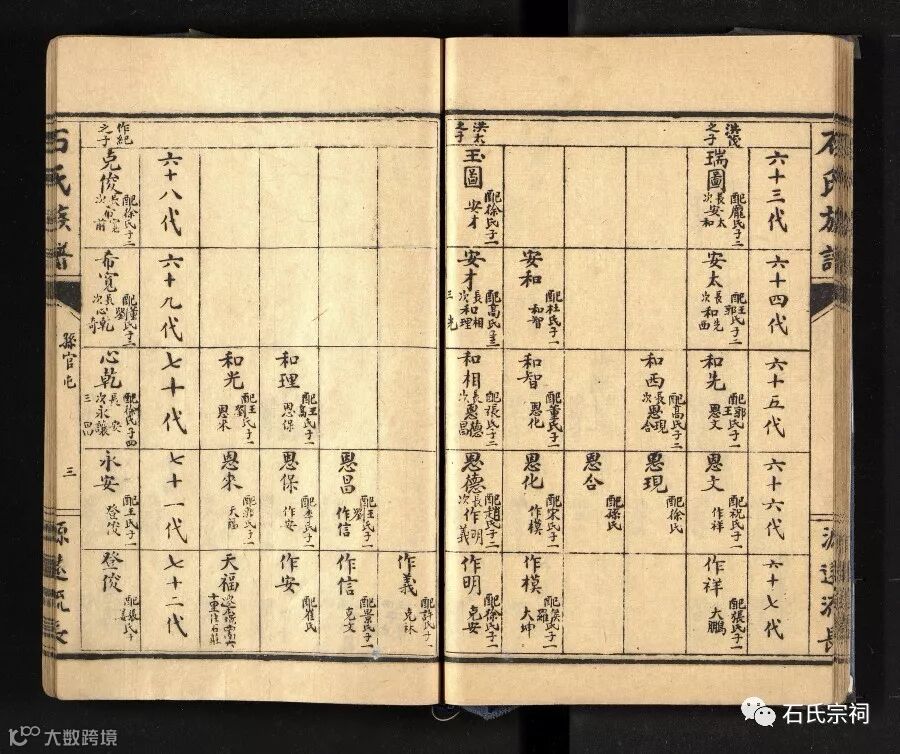 石氏族譜
源遠流長
六十三代
六十四代
六十五代
六十六代
六十七代
洪茂之子
瑞圖
配龐氏子二
長安太
次安和
安太
配王郭氏子二
長和先
次和西
和先
配郭王氏子一
恩文
恩文
配祝氏子一
作祥
作祥
配張氏子一
大鵬
和西
配高氏子二
長恩現
次恩合
恩現
配徐氏
恩合
配孫氏
安和
配杜氏子一
和智
和智
配董氏子一
恩化
恩化
配宋氏子一
作模
作模
大坤
洪太之子
玉圖
配徐氏子一
安才
安才
配高氏子三
長和相
次和理
三光
和相
配張氏子二
長恩德
次恩昌
恩德
配趙氏子二
長作明
次義
作明
配徐氏子一
克安
作義
配許氏子一
克林
恩昌
配王劉氏子一
作信
作信
配景氏子一
克文
和理
配王高氏子一
恩保
恩保
配李氏子一
作安
作安
配崔氏
和光
配王劉氏子一
恩來
恩來
天福
天福
六十八代
六十九代
七十代
七十一代
七十二代
作紀之子
克俊
配徐氏子二
長希寬
次前
希寬
配董劉氏子二
長心乾
次奇
心乾
配徐氏子四
長安
次永讓
三
四
永安
配王氏子一
登俊
登俊
石氏族譜
孫官屯
三
源遠流長
石氏宗祠
大数跨境